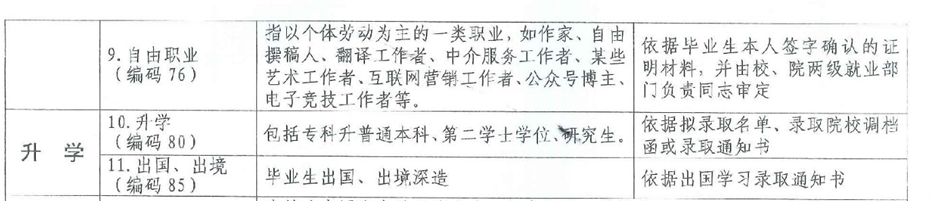 9.自由职业
（编码 76）
指以个体劳动为主的一类职业，如作家、自由
撰稿人、翻译工作者、中介服务工作者、某些
艺术工作者、互联网营销工作者、公众号博主、
电子竞技工作者等。
依据毕业生本人签字确认的证
明材料，并由校、院两级就业部
门负责同志审定
升 学
10.升学
（编码 80）
包括专科升普通本科、第二学士学位、研究生。
依据拟录取名单、录取院校调档
函或录取通知书
11.出国、出境
（编码 85）
毕业生出国、出境深造
依据出国学习录取通知书